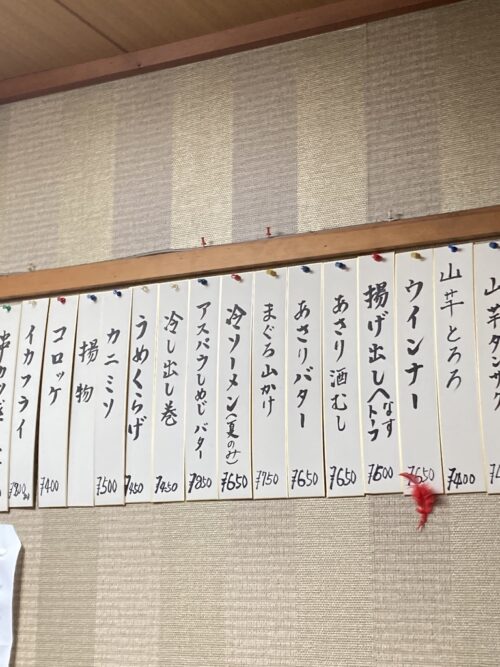 山芋タンザク
山芋とろろ
¥400
ウインナー
¥650
揚げ出し なす トーフ
¥600
あさり酒むし
¥650
あさりバター
¥650
まぐろ山かけ
¥750
冷ソーメン(夏のみ)
¥650
アスパラしめじバター
¥850
冷し出し巻
¥450
うめくらげ
¥450
カニミソ
¥500
揚物
コロッケ
¥400
イカフライ